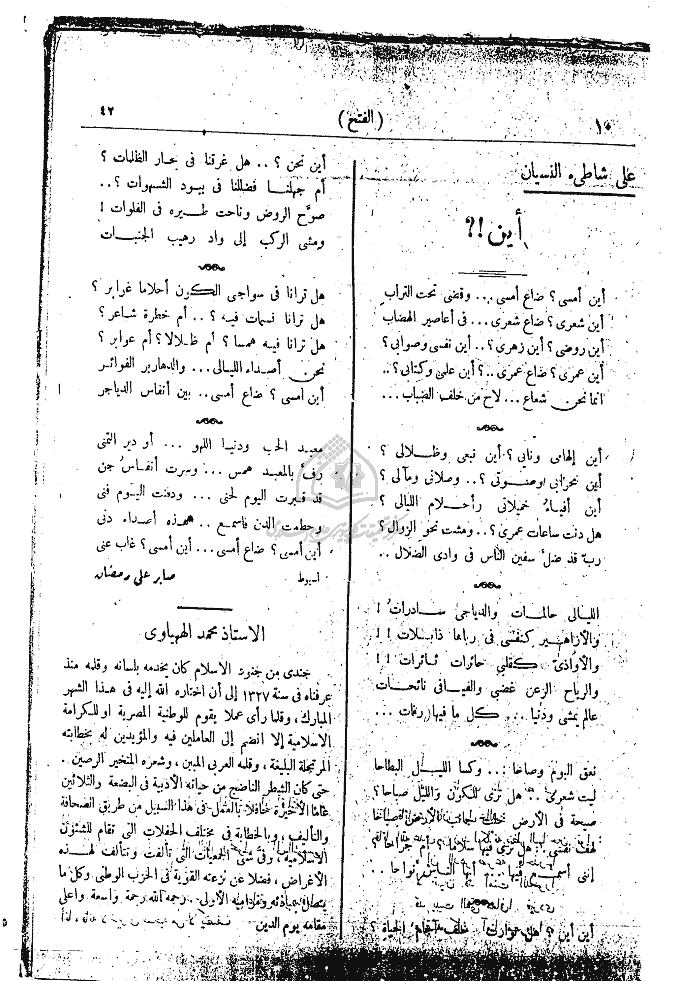 ١٠
( الفتح )
٤٢
على شاطىء النسيان
أين !؟
أين أمسى ؟ ضاع أمسى ... وقضى تحت التراب
أين شعرى ؟ ضاع شعرى ... فى أعاصير الهضاب
أين روضى ؟ أين زهرى ؟ .. أين نفسى وصوابى ؟
أين عمرى ؟ ضاع عمرى ..؟ أين على وكتابى ؟ ..
انما نحن شعاع ... لاح من خلف الضباب ...
أين إلهامى ونابى ؟ أين نبعى وظلالى ؟
أين محرابى وصوتى ؟ .. وصلاتى ومآلى ؟
أين أفياء خميلاتى وأحلام الليالى ؟
هل دنت ساعات عمرى ؟ .. ومشت نحو الزوال ؟
ربّ قد ضلّ سفين الناس فى وادى الضلال ..
الليالى حالمات والدياجى سادرات !
والأزاهير كنفسى فى رباها ذابلات ! !
والأواذىّ كقلبى حائرات ثائرات ! !
والرياح الزعن غضبى والفيافى نائحات
عالم يمشى ودنيا ... كل ما فيها رفات ...
نعق البوم وصاحا ... وكسا الليل البطاحا
ليت شعرى .. هل ترى للكون والليل صباحا ؟
صيحة فى الأرض
لهف نفسى هل ترى فيها سلاما ؟ أم جراحا ؟
إننى أسمع فيها .. أنها الناس نواحا ..
أين أين ؟ خلف الحياة ؟
أين نحن ؟ .. هل غرقنا فى بحار الظلمات ؟
أم جهلنا فضللنا فى بيود الشهوات ؟ ..
صوّح الروض وناحت طيره فى الفلوات !
ومشى الركب إلى واد رهيب الجنبات
هل ترانا فى سواجى الكون أحلاما غوابر ؟
هل ترانا نسمات فيه ؟ .. أم خطرة شاعر ؟
هل ترانا فيه همسا ؟ أم ظلالا ؟ أم عوابر ؟
نحن أصداء الليالى ... والدهارير الغوائر
أين أمسى ؟ ضاع أمسى .. بين أنفاس الدياجر
معبد الحب ودنيا اللهو ... أو دير التمنى
رفّ بالمعبد همس ... وسرت أنفاس جن
قد قبرت اليوم لحنى ... ودفنت اليوم فنى
وحطمت الدن فاسمع .. هذه أصداء دنى
أين أمسى ؟ ضاع أمسى ... أين أمسى ؟ غاب عنى
أسيوط صابر على رمضان
الاستاذ محمد الههياوى
جندى من جنود الاسلام كان يخدمه بلسانه وقلمه منذ
عرفناه فى سنة ١٣٢٧ إلى أن اختاره الله إليه فى هذا الشهر
المبارك ، وقلما رأى عملا يقوم للوطنية المصرية او للكرامة
الاسلامية إلا انضم إلى العاملين فيه والمؤيدين له بخطابته
المرتجلة البليغة ، وقلمه العربى المبين ، وشعره المتخير الرصين .
حتى كان الشطر الناضج من حياته الأدبية فى البضعة والثلاثين
عاما الأخيرة حافلا بالعمل فى هذا السبيل من طريق الصحافة
والتأليف ، وبالخطابة فى مختلف الحفلات التى تقام للشئون
الاسلامية ، وفى شتى الجمعيات التى تألفت وتتألف لهذه
الأغراض ، فضلا عن نزعته القوية فى الحزب الوطنى وكل ما
يتصل بمبادئه الأولى . رحمه الله رحمة واسعة وأعلى
مقامه يوم الدين